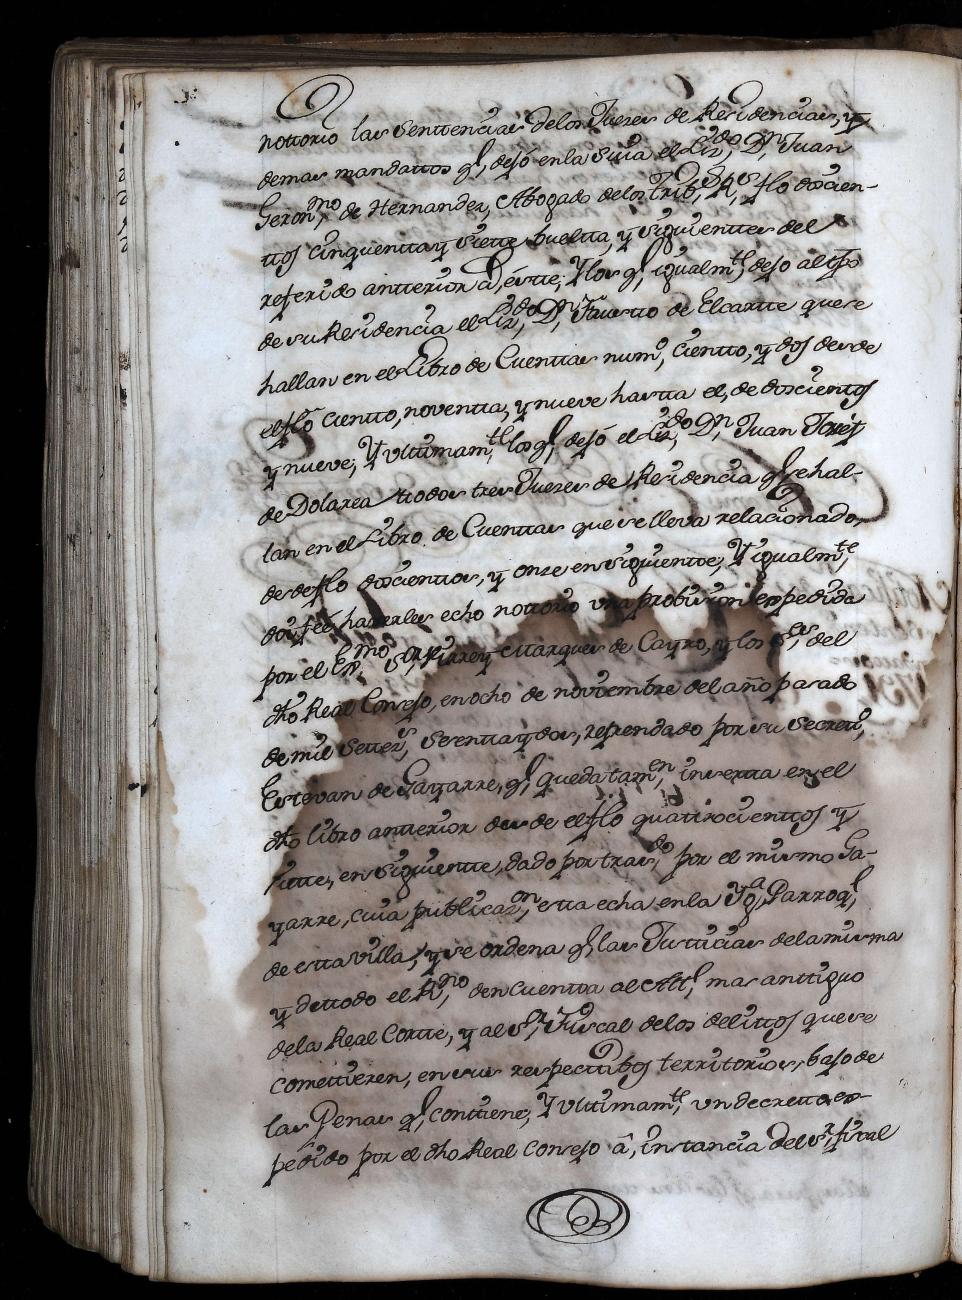 nottorio las Senttencias delos Juezes de Residencias, y
demas mandattos q̃ dejó en la Suia el Liz.do Dn Juan
Geron.mo de Hernandez, Abogado delos Trib.s R.s flo doscien-
ttos cinquentta y Siette buelta, y Siguienttes del
referido antterior â éstte; Y los q̃ igualm.te dejo al tpo
de su Residencia el Liz.do Dn Faustto de Elcartte que se
hallan en el Libro de Cuenttas num.o cientto, y dos desde
el flo cientto, noventta, y nueve hastta el, de doscienttos
y nueve; Y ulttimam.te los q̃ dejó el Liz.do Dn Juan Joseph
de Dolarea ttodos tres Juezes de Residencia q̃ se hal-
lan en el Libro de Cuenttas que se lleva relacionado,
desde flo doscienttos, y onze en Siguientte; Y igualm.te
doi feé haverles echo nottorio una probision expedida
por el Ex.mo S.or Virrey Marques de Cayro, y los S.es del
dho Real Consejo, en ocho de noviembre del año pasado
de mil Settez.s Sesentta y dos, refrendado por su Secrett.o
Esttevan de Gayarre, q̃ queda tam.en insertta en el
dho libro antterior desde el flo quattrocienttos y
siette, en Siguientte, dado por tras.do por el mismo Ga-
yarre, cuia publicaz.on estta echa en la Yg.a Parroq.l
de estta villa, y se ordena q̃ las Justticias dela misma
y de ttodo el R.no den cuentta al Alc.l mas anttiguo
dela Real Cortte, y al S.r Fiscal delos delittos que se
comettieren, en sus respecttibos territtorios, bajo de
las Penas q̃ conttiene; Y ulttimam.te un decretto ex-
pedido por el dho Real Consejo â, instancia del S.r fiscal